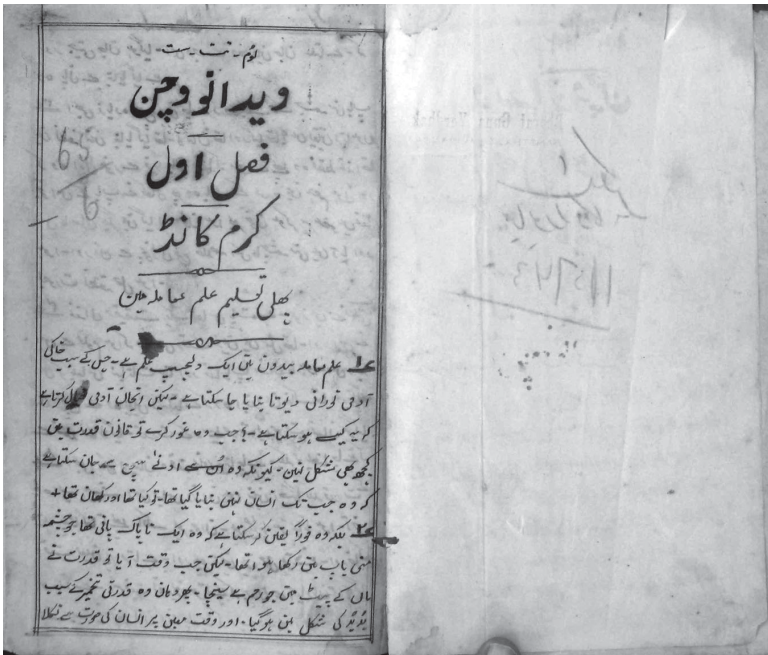 اوم - تت - ست
ویدانووچن
فصل اول
کرم کانڈ
پہلی تسلیم علم معاملہ مین
۱ علم معاملہ بیدون مین ایک دلچسپ علم ہے - جس کے سبب خاکی
آدمی نورانی دیوتا بنایا جا سکتا ہے - لیکن انجان آدمی خیال کرتا ہے
کہ یہ کیسے ہو سکتا ہے - جب وہ غور کرے تو قانون قدرت مین
کچھ بھی مشکل نہین - کیونکہ وہ اس ادنے سے جان سکتا ہے
کہ وہ جب تک انسان نہین بنایا گیا تھا - تو کیا تھا اور کہان تھا +
۲ بلکہ وہ فوراً یقین کر سکتا ہے کہ وہ ایک ناپاک پانی تھا جو چشمہ
منی باپ مین رکھا ہوا تھا - لیکن جب وقت آیا تو قدرت نے
مان کے پیٹ مین جو رحم ہے سینچا - پھر وہان وہ قدرتی خمیر کے سبب
کی شکل مین ہو گیا - اور وقت معین پر انسان کی صورت سے نکلا